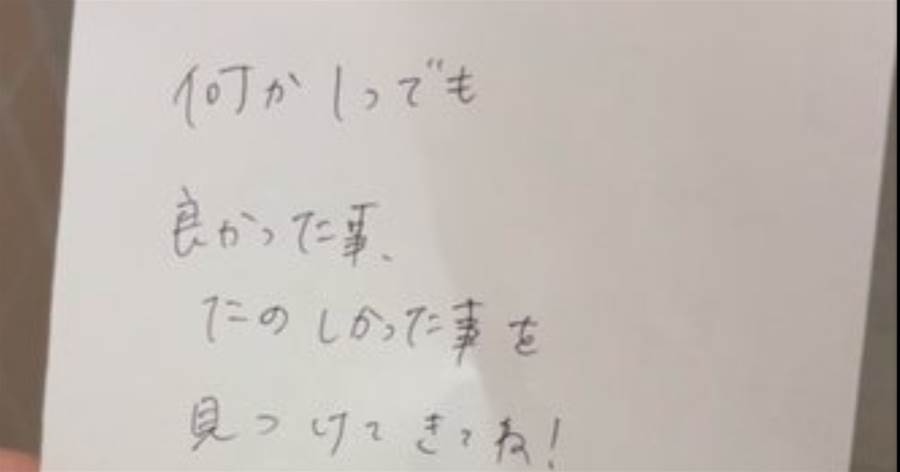 何か1つでも
良かった事、
たのしかった事を
見つけてきてね!